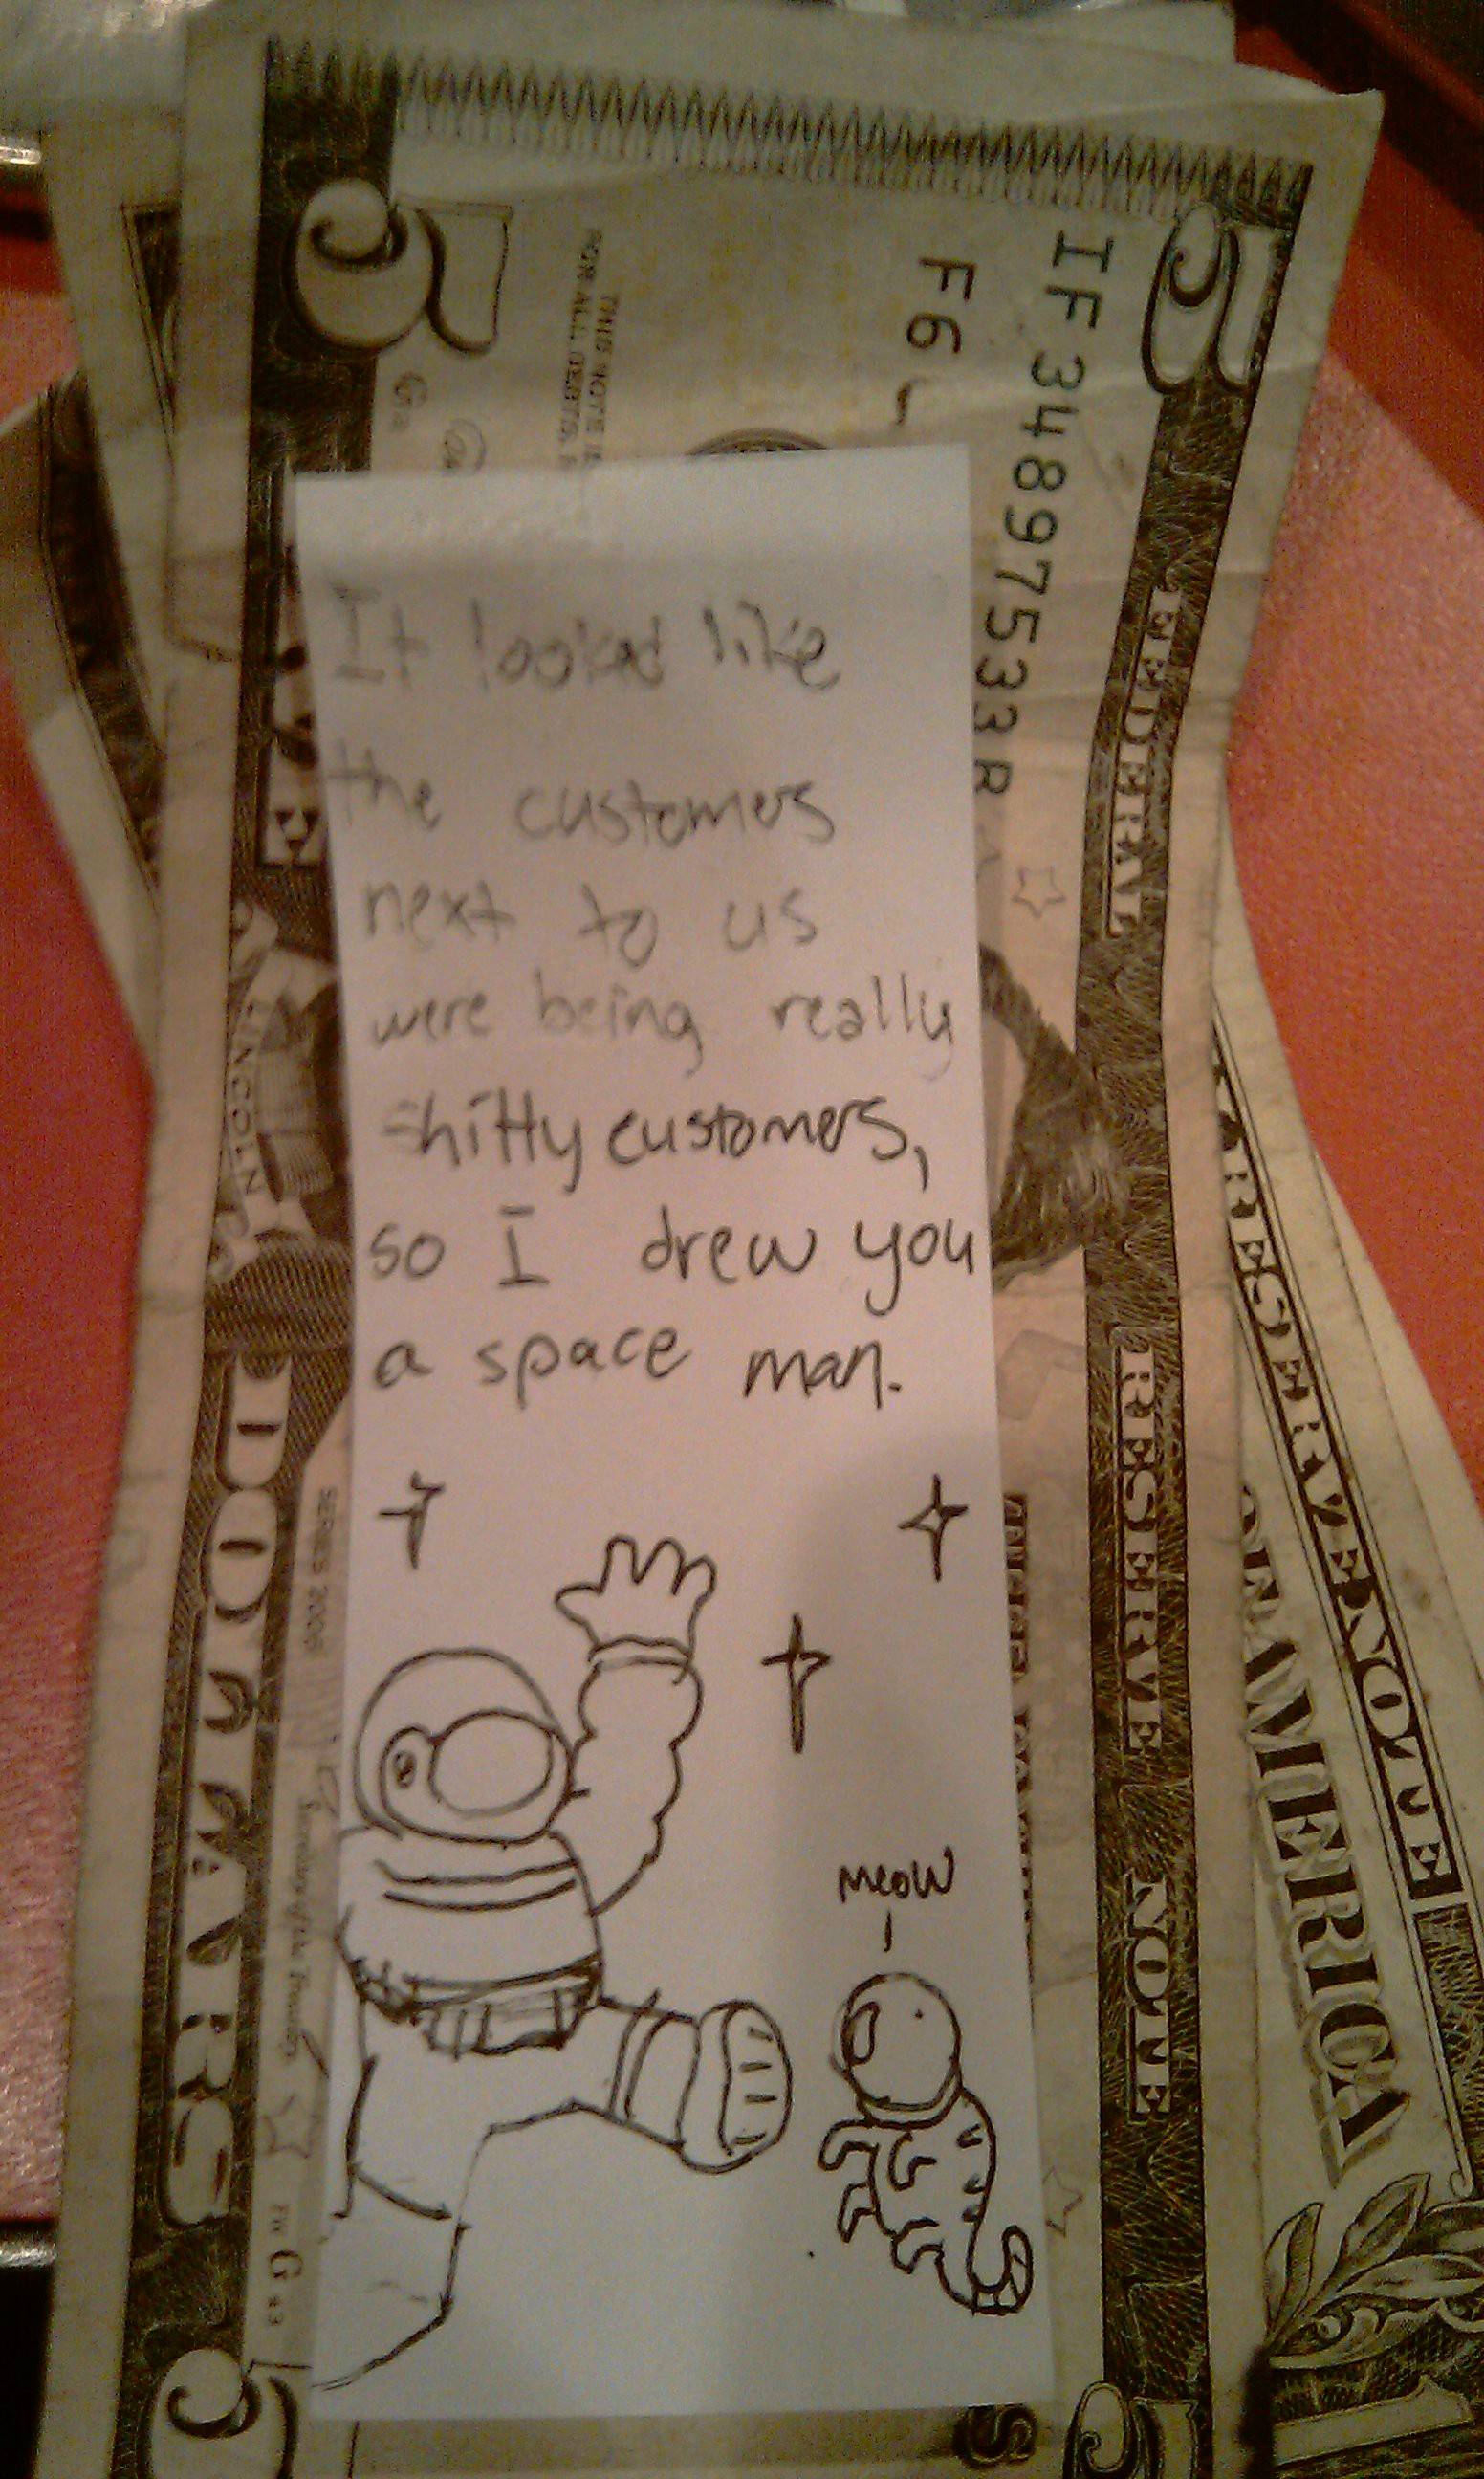 It looked like
the customers
next to us
were being really
shitty customers,
so I drew you
a space man.
meow
5
5
F6
IF34897533R
THIS NOTE IS
FOR ALL DEBTS,
FEDERAL RESERVE NOTE
LINCOLN
DOLLARS
RESERVE NOTE
OF AMERICA
5
5
1